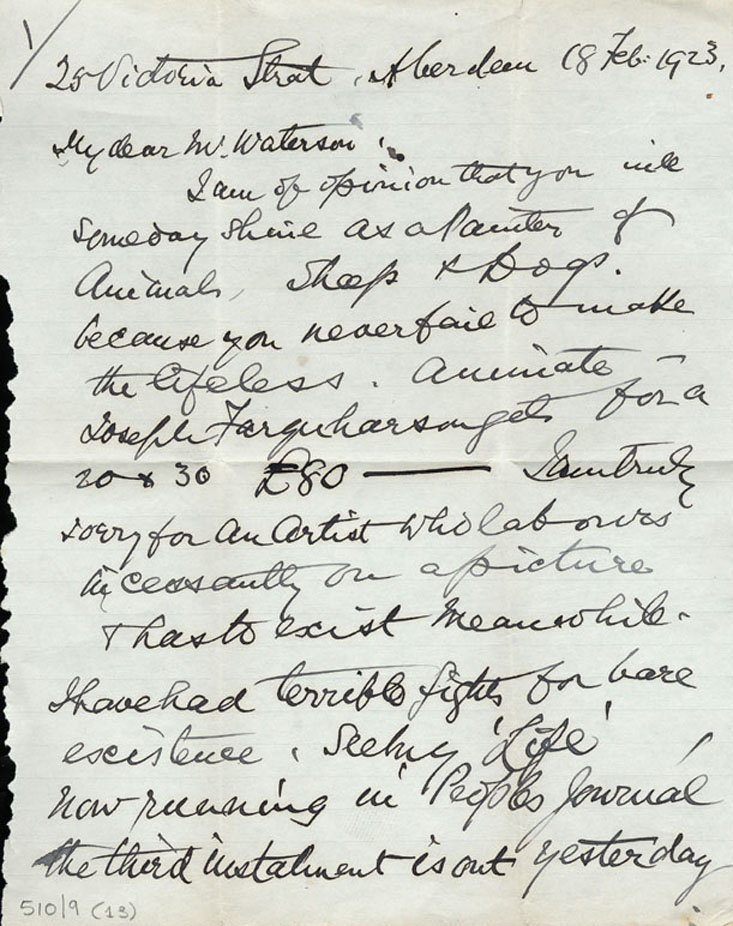 1/
28 Victoria Street, Aberdeen 18 Feb: 1923,
My dear Mr. Waterson,
I am of opinion that you will
someday shine as a Painter of
Animals, Sheep & Dogs.
because you never fail to make
the lifeless. animate
Joseph Farquharson gets for a
20 x 30 £80 — I am truly
sorry for an Artist who labours
incessantly on a picture
& has to exist meanwhile.
I have had terrible fights for bare
existence. Seeing 'Life'
now running in Peoples Journal
the third instalment is out yesterday
510/9 (13)